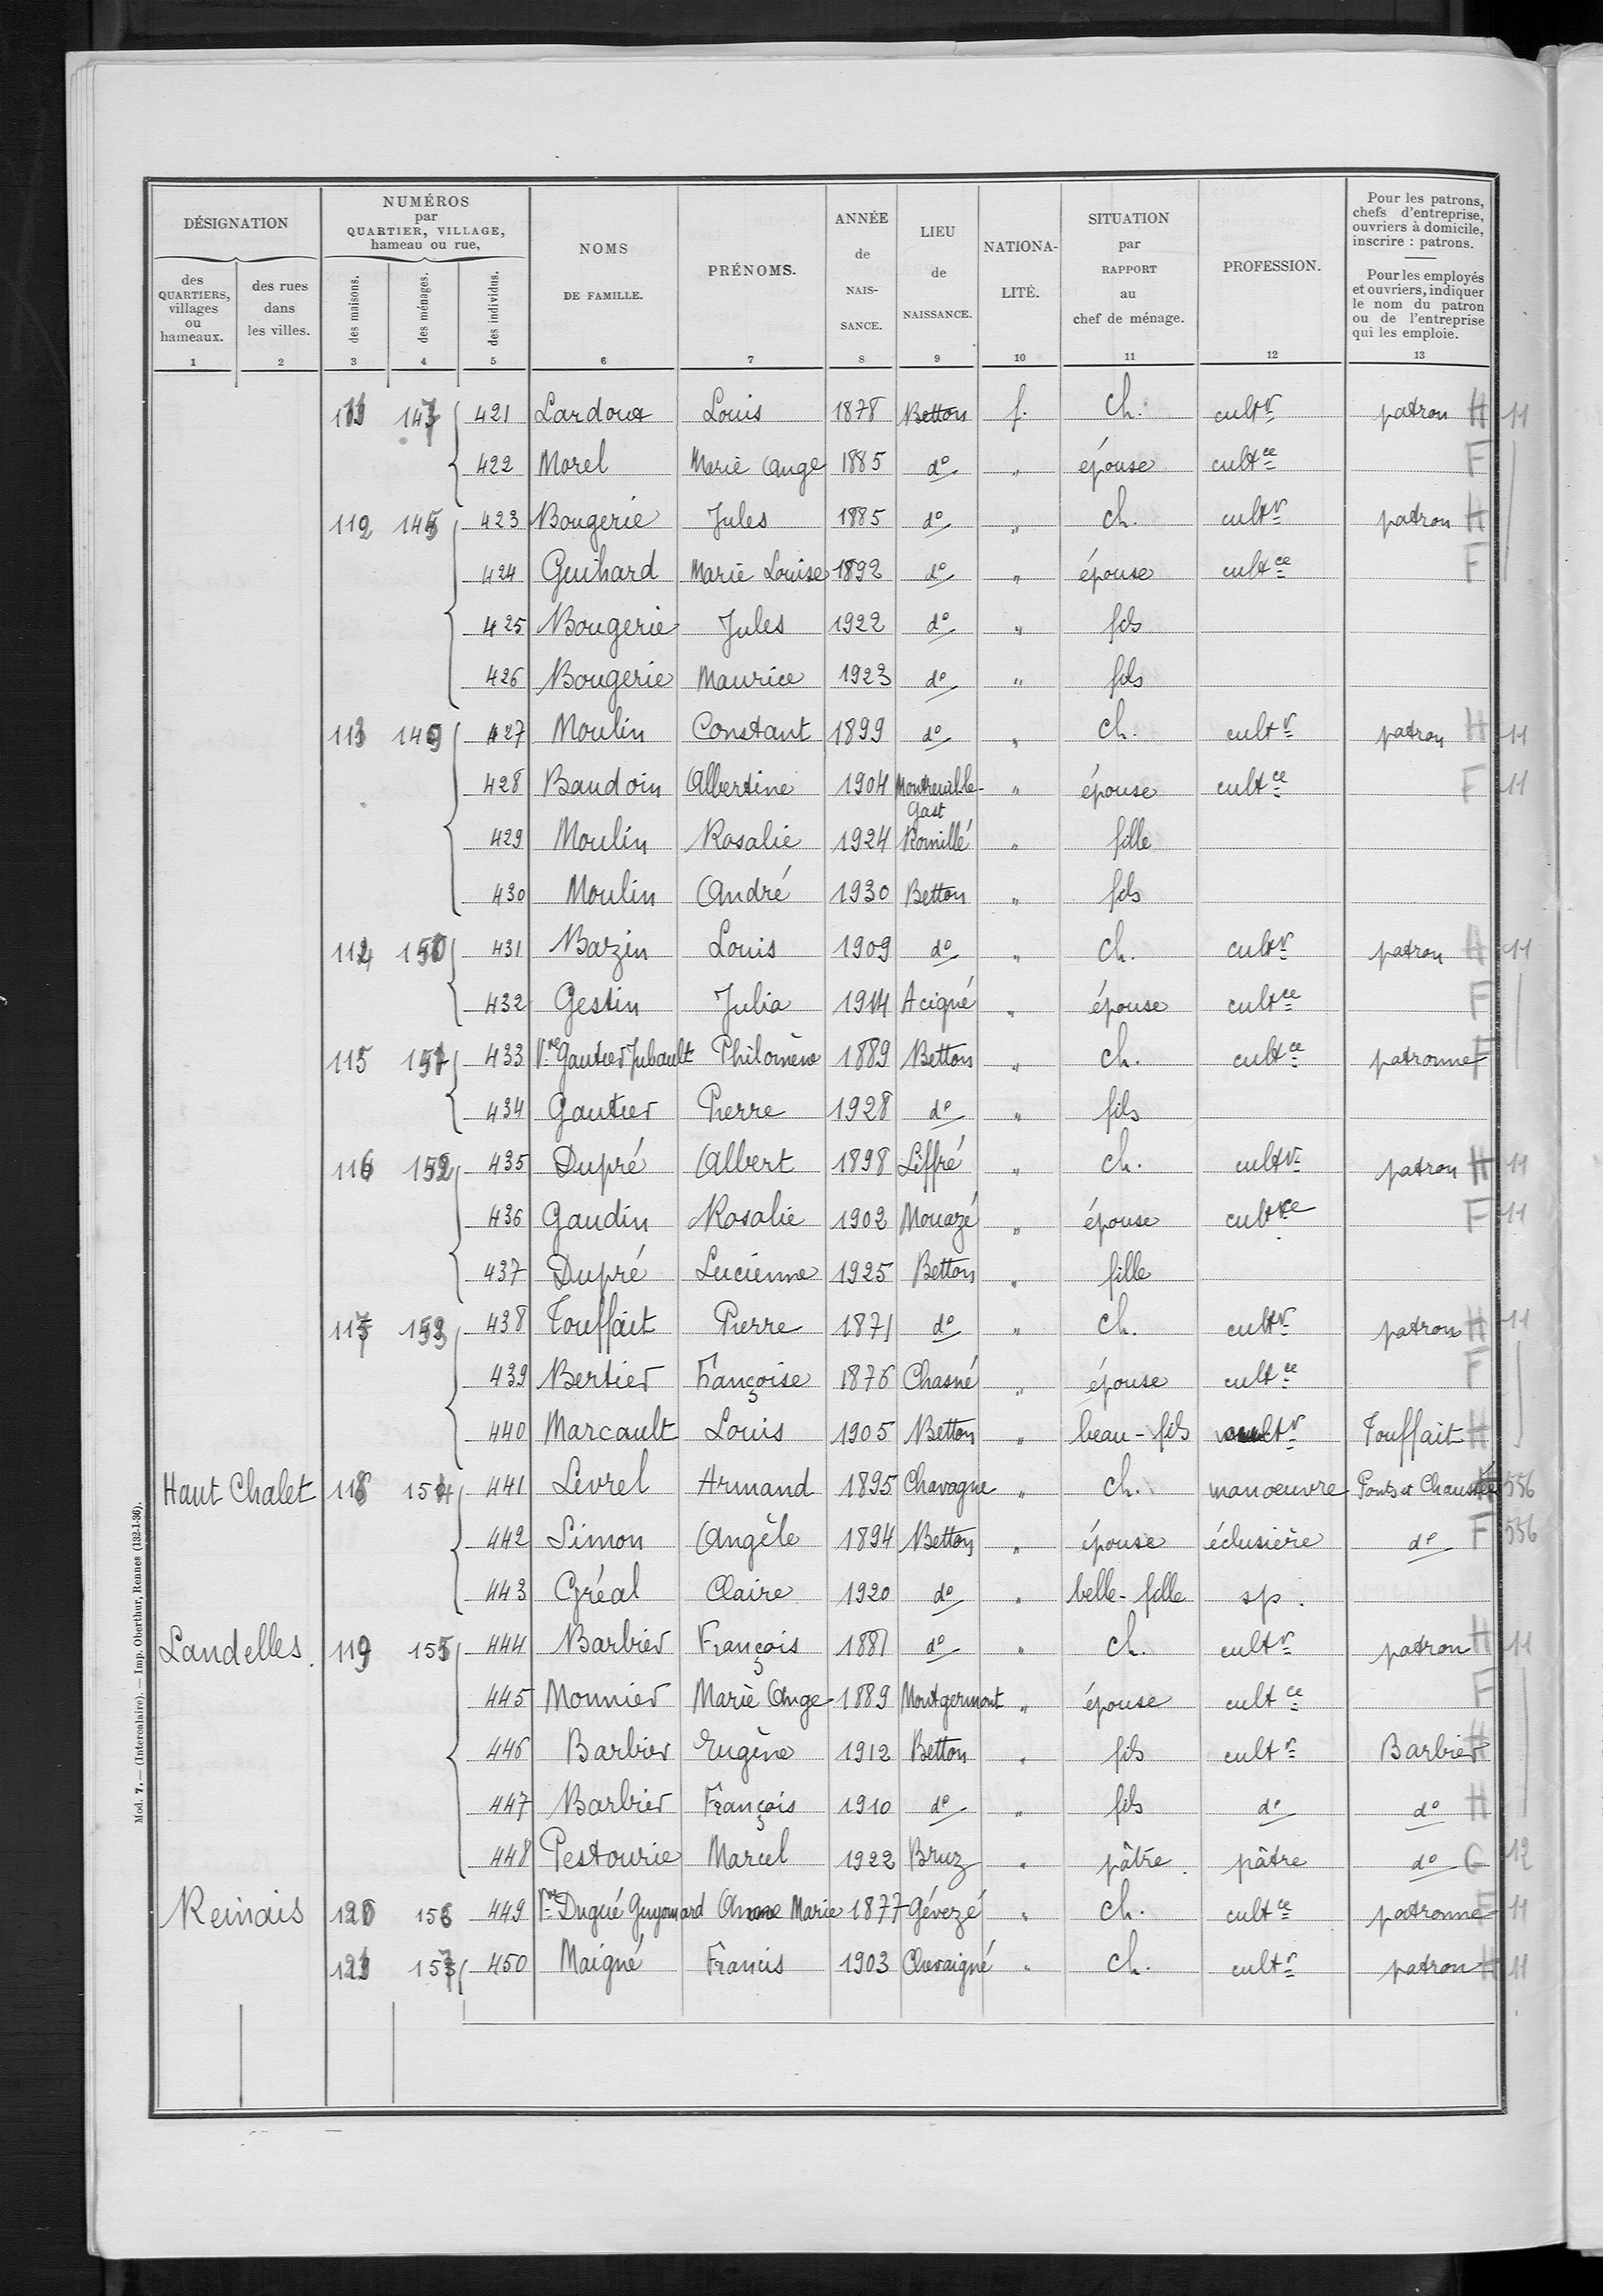 DÉSIGNATION
NUMÉROS
par
QUARTIER, VILLAGE,
hameau ou rue,
NOMS
DE FAMILLE.
PRÉNOMS.
ANNÉE
de
NAIS-
SANCE.
LIEU
de
NAISSANCE.
NATIONA-
LITÉ.
SITUATION
par
RAPPORT
au
chef de ménage.
PROFESSION.
Pour les patrons,
chefs d'entreprise,
ouvriers à domicile,
inscrire : patrons.
Pour les employés
et ouvriers, indiquer
le nom du patron
ou de l'entreprise
qui les emploie.
des
QUARTIERS,
villages
ou
hameaux.
des rues
dans
les villes.
des maisons.
des ménages.
des individus.
1 2 3 4 5 6 7 8 9 10 11 12 13
421 Lardoux Louis 1878 Betton f. ch. cultr patron H 11
422 Morel Marie Ange 1885 do " épouse cultce F
112 423 Bougerie Jules 1885 do " ch. cultr patron H
424 Guihard Marie Louise 1892 do " épouse cultce F
425 Bougerie Jules 1922 do " fils
426 Bougerie Maurice 1923 do " fils
113 427 Moulin Constant 1899 do " ch. cultr patron H 11
428 Baudoin Albertine 1904 Montreuil-le-Gast " épouse cultce F 11
429 Moulin Rosalie 1924 Romillé " fille
430 Moulin André 1930 Betton " fils
114 150 431 Bazin Louis 1909 do " ch. cultr patron H 11
432 Gestin Julia 1914 Acigné " épouse cultce F
115 151 433 Vve Gautier Jubault Philomène 1889 Betton " ch. cultce patronne F
434 Gautier Pierre 1928 do " fils
116 152 435 Dupré Albert 1898 Liffré " ch. cultr patron H 11
436 Gaudin Rosalie 1902 Mouazé " épouse cultce F 11
437 Dupré Lucienne 1925 Betton " fille
117 153 438 Touffait Pierre 1871 do " ch. cultr patron H 11
439 Bertier Françoise 1876 Chasné " épouse cultce F
440 Marcault Louis 1905 Betton " beau-fils cultr Touffait H
Haut Chalet 118 154 441 Levrel Armand 1895 Chavagne " ch. manoeuvre Ponts et Chaussées H 556
442 Simon Angèle 1894 Betton " épouse éclusière do F 556
443 Gréal Claire 1920 do " belle-fille sp.
Landelles. 119 155 444 Barbier François 1881 do " ch. cultr patron H 11
445 Monnier Marie Ange 1889 Montgermont " épouse cultce F
446 Barbier Eugène 1912 Betton " fils cultr Barbier H
447 Barbier François 1910 do " fils do do H
448 Pestourie Marcel 1922 Bruz " pâtre. pâtre do G 12
Reinais 120 156 449 Vve Dugué Guyomard Anne Marie 1877 Gévezé " ch. cultce patronne F 11
121 157 450 Maigné Francis 1903 Chevaigné " ch. cultr patron H 11
Mod. 7. — (Intercalaire). — Imp. Oberthur, Rennes (132-1-36).